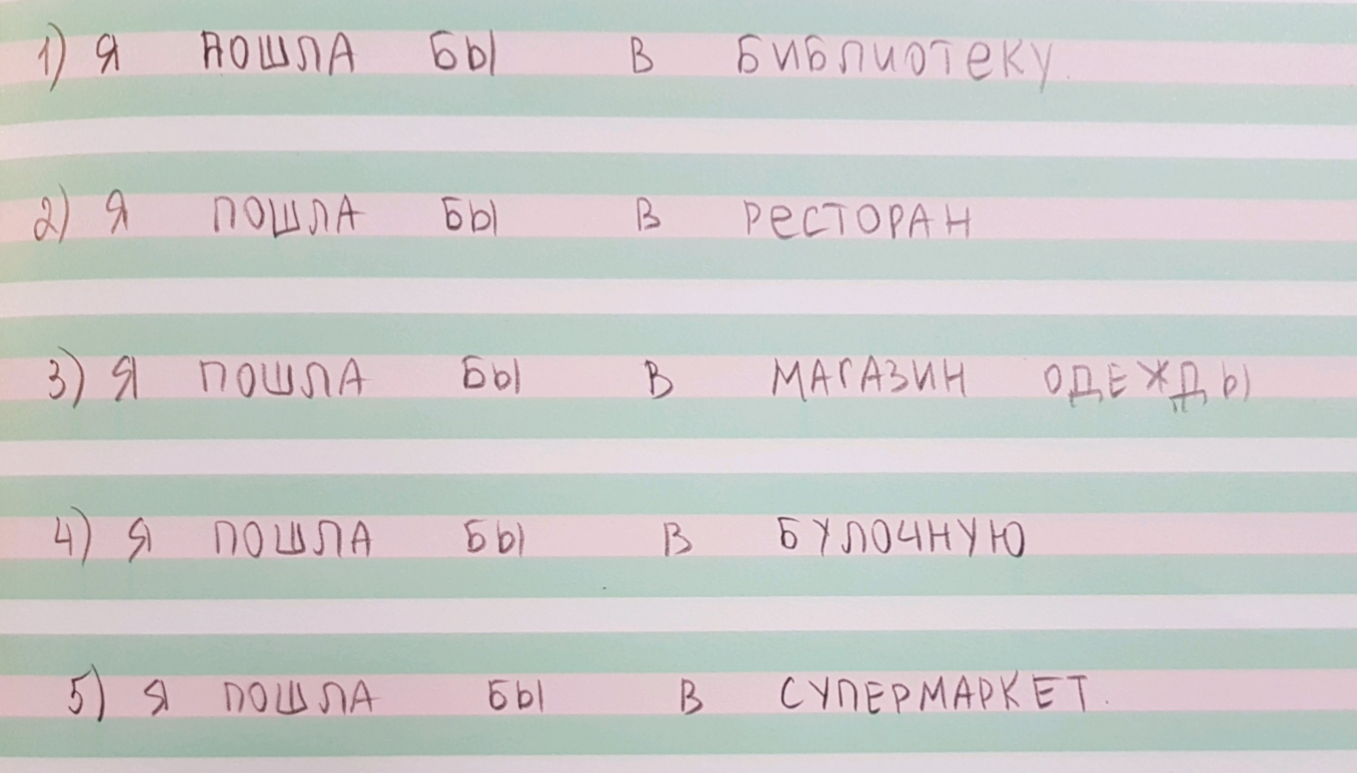 1) Я ПОШЛА БЫ В БИБЛИОТЕКУ.
2) Я ПОШЛА БЫ В РЕСТОРАН
3) Я ПОШЛА БЫ В МАГАЗИН ОДЕЖДЫ
4) Я ПОШЛА БЫ В БУЛОЧНУЮ
5) Я ПОШЛА БЫ В СУПЕРМАРКЕТ.